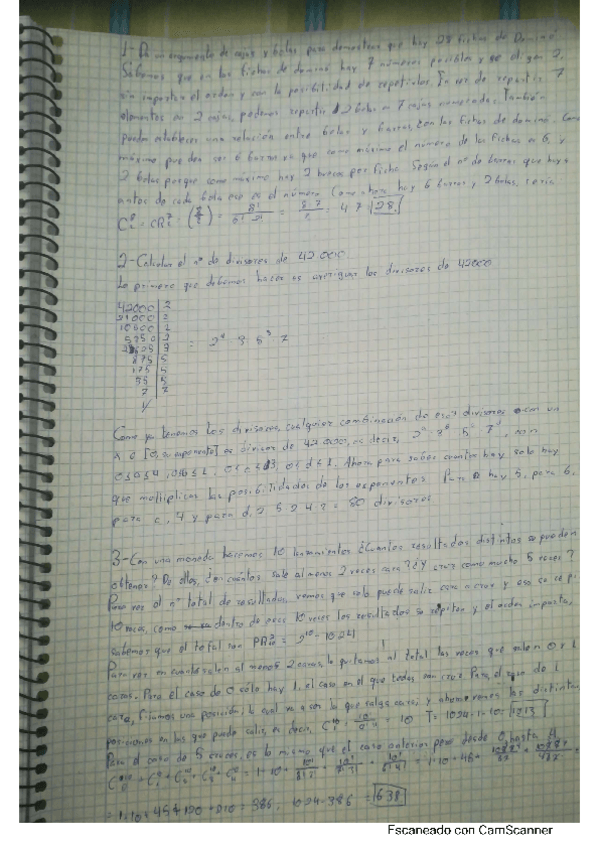 1- Da un argumento de cajas y bolas para demostrar que hay 28 fichas de Dominó
Sabemos que en las fichas de domino hay 7 números posibles y se eligen 2,
sin importar el orden y con la posibilidad de repetirlos. En vez de repartir 7
elementos en 2 cajas, podemos repartir 2 bolas en 7 cajas numeradas. También
puedo establecer una relación entre bolas y barras, con las fichas de domino. Como
máximo pueden ser 6 barras ya que como máximo el número de las fichas es 6, y
2 bolas porque como máximo hay 2 huecos por ficha. Según el nº de barras que haya
antes de cada bola ese es el número. Como ahora hay 6 barras y 2 bolas, sería
= 28
2- Calcular el nº de divisores de 42000
Lo primero que debemos hacer es averiguar los divisores de 42000
42000 | 2
21000 | 2
10500 | 2
5250 | 2
2625 | 3
875 | 5
175 | 5
35 | 5
7 | 7
1
Como ya tenemos los divisores, cualquier combinación de esos divisores con un
es divisor de 42.000, es decir,
Ahora para saber cuantos hay solo hay
que multiplicar las posibilidades de los exponentes. Para a hay 5, para b,
para c, 4 y para d, 2 5·2·4·2 = 80 divisores
3- Con una moneda hacemos 10 lanzamientos ¿Cuántos resultados distintos se pueden
obtener? De ellos, ¿en cuántos sale al menos 2 veces cara? ¿Y cruz como mucho 5 veces?
Para ver el nº total de resultados, vemos que solo puede salir cara o cruz y eso se repi
10 veces, como dentro de esas 10 veces los resultados se repiten y el orden importa,
sabemos que el total son = 2^10 = 1024
Para ver en cuantos salen al menos 2 caras, le quitamos al total las veces que salen 0 y 1
caras. Para el caso de 0 sólo hay 1, el caso en el que todas son cruz. Para el caso de 1
cara, fijamos una posición, la cual va a ser la que salga cara, y ahora vemos las distintas
posiciones en las que puede salir, es decir, = 10 T= 1024-1-10= 1013
Para el caso de 5 cruces, es lo mismo que el caso anterior pero desde 0 hasta 4
= 1+10+45+120+210 = 386; 1024-386 = 638
Escaneado con CamScanner